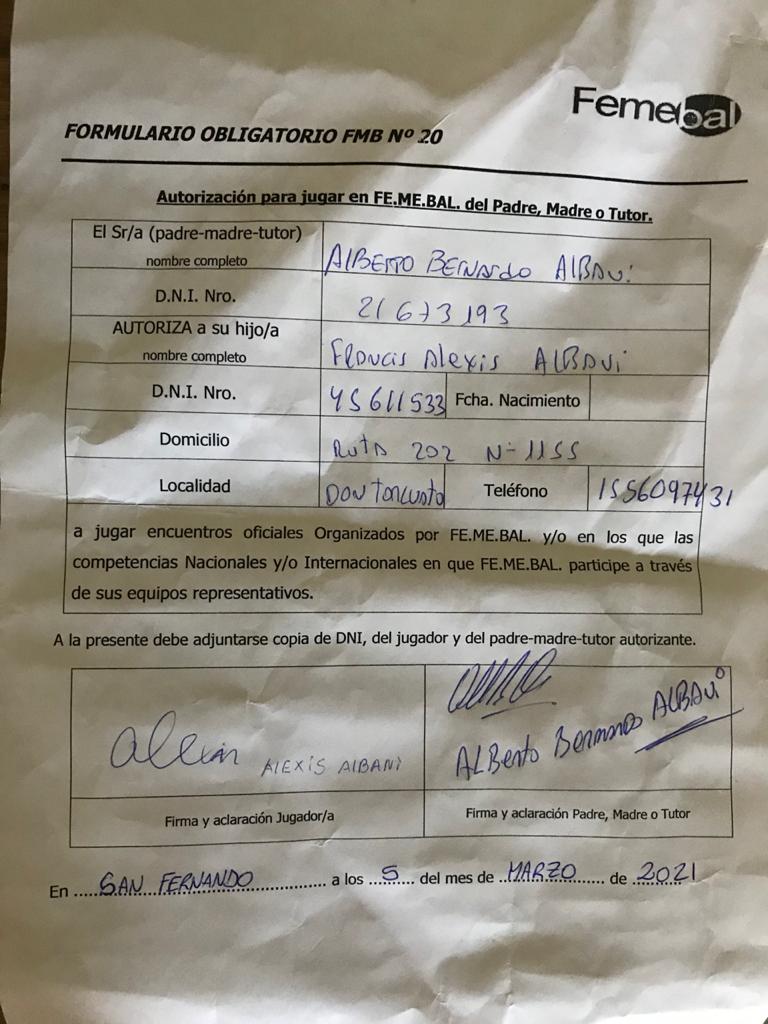 Femebal
FORMULARIO OBLIGATORIO FMB Nº 20
Autorización para jugar en FE.ME.BAL. del Padre, Madre o Tutor.
El Sr/a (padre-madre-tutor)
nombre completo
ALBERTO BERNARDO ALBANI
D.N.I. Nro.
21673193
AUTORIZA a su hijo/a
nombre completo
FRANCIS Alexis ALBANI
D.N.I. Nro.
45611533
Fcha. Nacimiento
Domicilio
RUTA 202 N- 1155
Localidad
DON TORCUATO
Teléfono
1556097431
a jugar encuentros oficiales Organizados por FE.ME.BAL. y/o en los que las
competencias Nacionales y/o Internacionales en que FE.ME.BAL. participe a través
de sus equipos representativos.
A la presente debe adjuntarse copia de DNI, del jugador y del padre-madre-tutor autorizante.
ALEXIS ALBANI
ALBerto Bernardo ALBANI
Firma y aclaración Jugador/a
Firma y aclaración Padre, Madre o Tutor
En ..... SAN FERNANDO ............... a los ..5.... del mes de ..MARZO...... de .2021